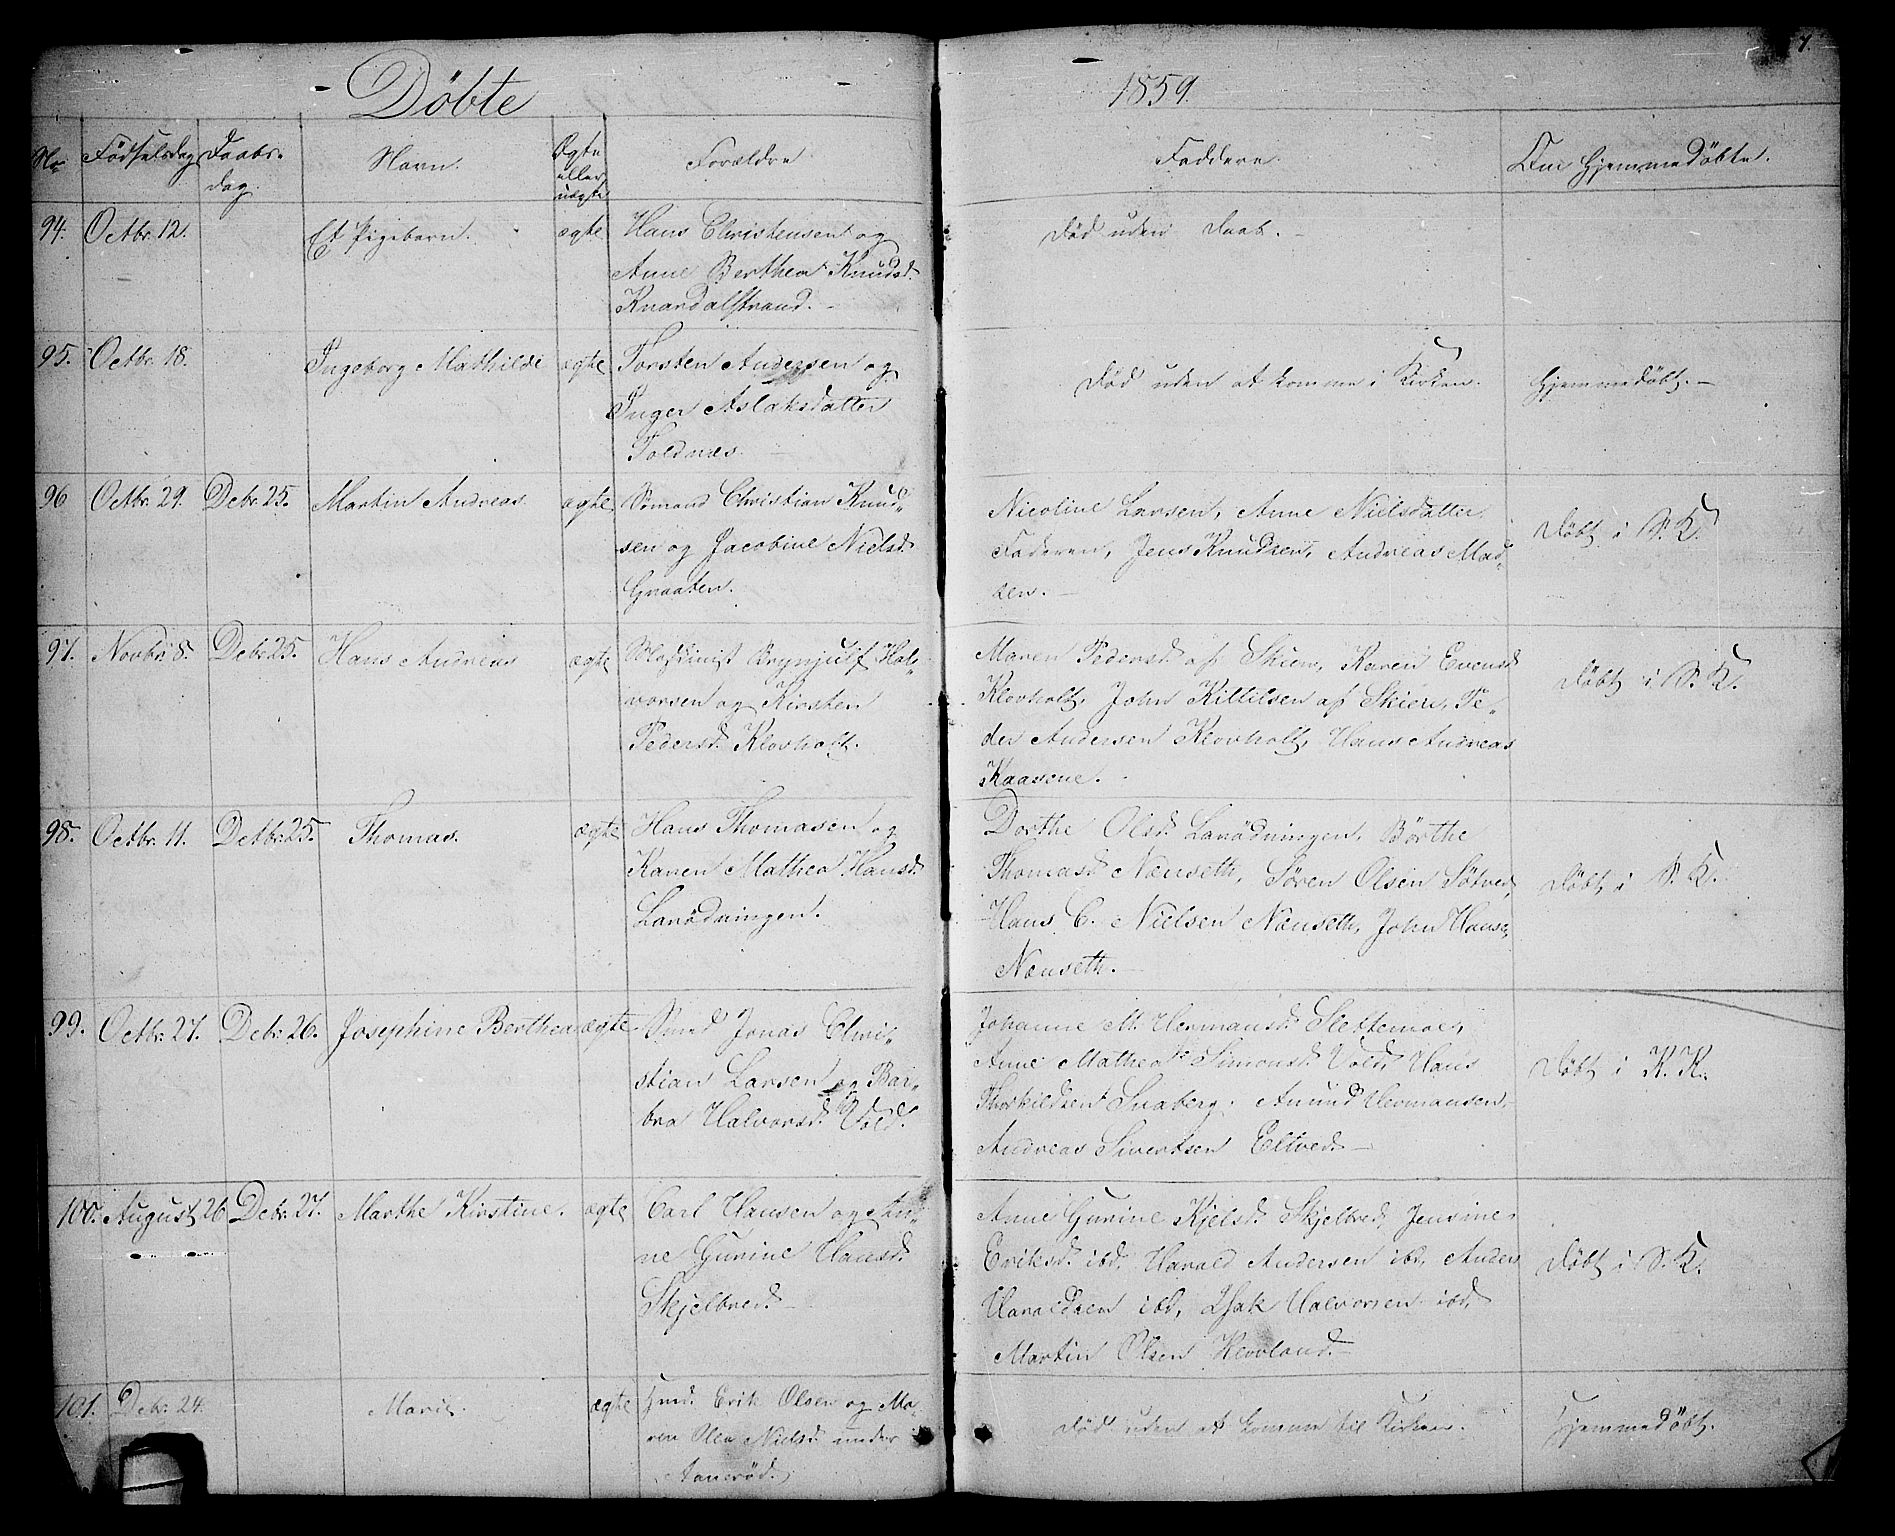 Döbte
1859.
7.
No
Födselsdag
Daabs-
dag.
Navn.
Ægte
eller
uægte
Forældre
Faddere.
Om Hjemmedöbte.
94.
Octbr. 12.
Et Pigebarn.
ægte
Hans Christensen og
Anne Berthea Knudsd.
Knardalstrand.
Död uden Daab.
95.
Octbr. 18.
Ingeborg Mathilde
ægte
Torsten Andersen og
Inger Aslaksdatter
Foldnæs
Död uden at komme i Kirken.
Hjemmedöbt.
96
Octbr. 29.
Debr. 25.
Martin Andreas.
ægte
Sömand Christian Knud-
sen og Jacobine Nielsd.
Graaten.
Nicoline Larsen, Anne Nielsdatter
Faderen, Jens Knudsen, Andreas Mad-
sen.
Döbt i S. K.
97.
Novbr. 8.
Debr. 25.
Hans Andreas
ægte
Brynjulf Hal-
vorsen og Kirsten
Pedersd. Klovholt.
Maren Pedersd. af Skien, Karen Evensd.
Klovholt, John Kittilsen af Skien, Pe-
der Andersen Klovholt, Hans Andreas
Kaasene.
Döbt i S. K.
98.
Octbr. 11.
Detbr. 25.
Thomas.
ægte
Hans Thomasen og
Karen Mathea Hansd.
Larödningen.
Dorthe Olsd. Larödningen, Börthe
Thomasd. Nænseth, Sören Olsen Sötved,
Hans C. Nielsen Nænseth, John Hans-
Nænseth.
Döbt i S. K.
99.
Octbr. 27.
Debr. 26.
Josephine Berthea
ægte
Smed Jonas Chri-
stian Larsen og Bar-
bra Halvorsd. Vold.
Johanne M. Hermansd. Slettemoe,
Anne Mathea Simonsd. Vold, Hans
Thorkildsen Snaberg. Amund Hermansen.
Andreas Sivertsen Eltved.
Döbt i K. K.
100.
August 26
Debr. 27.
Marthe Kirstine.
ægte
Carl Hansen og An-
ne Gurine Hansd.
Skjelbred.
Anne Gurine Kjelsd. Skjelbred, Jensine
Eriksd. ibd, Harald Andersen ibd, Anders
Haraldsen ibd, Isak Halvorsen ibd,
Martin Olsen Klovland.
Döbt i S. K.
101.
Debr. 24.
Marie.
ægte
Erik Olsen og Ma-
ren Olea Nielsd. under
Aaneröd.
Död uden at komme til Kirken.
Hjemmedöbt.